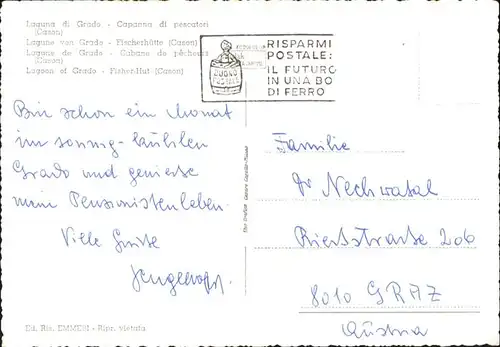 Laguna di Grado - Capanna di pescatori
(Cason)
Lagune von Grado - Fischerhütte (Cason)
Lagune de Grado - Cabane de pêcheurs
(Cason)
Lagoon of Grado - Fisher-Hut (Cason)
RISPARMI
POSTALE:
IL FUTURO
IN UNA BO
DI FERRO
BUONO
POSTALE
Bin schon ein Monat
im sonnig-kühlen
Grado und genieße
mein Pensionistenleben.
Viele Grüße
Familie
Dr Nechwatal
Riesstrasse 206
8010 GRAZ
Austria
Ed. Ris. EMMEDI - Ripr. vietata